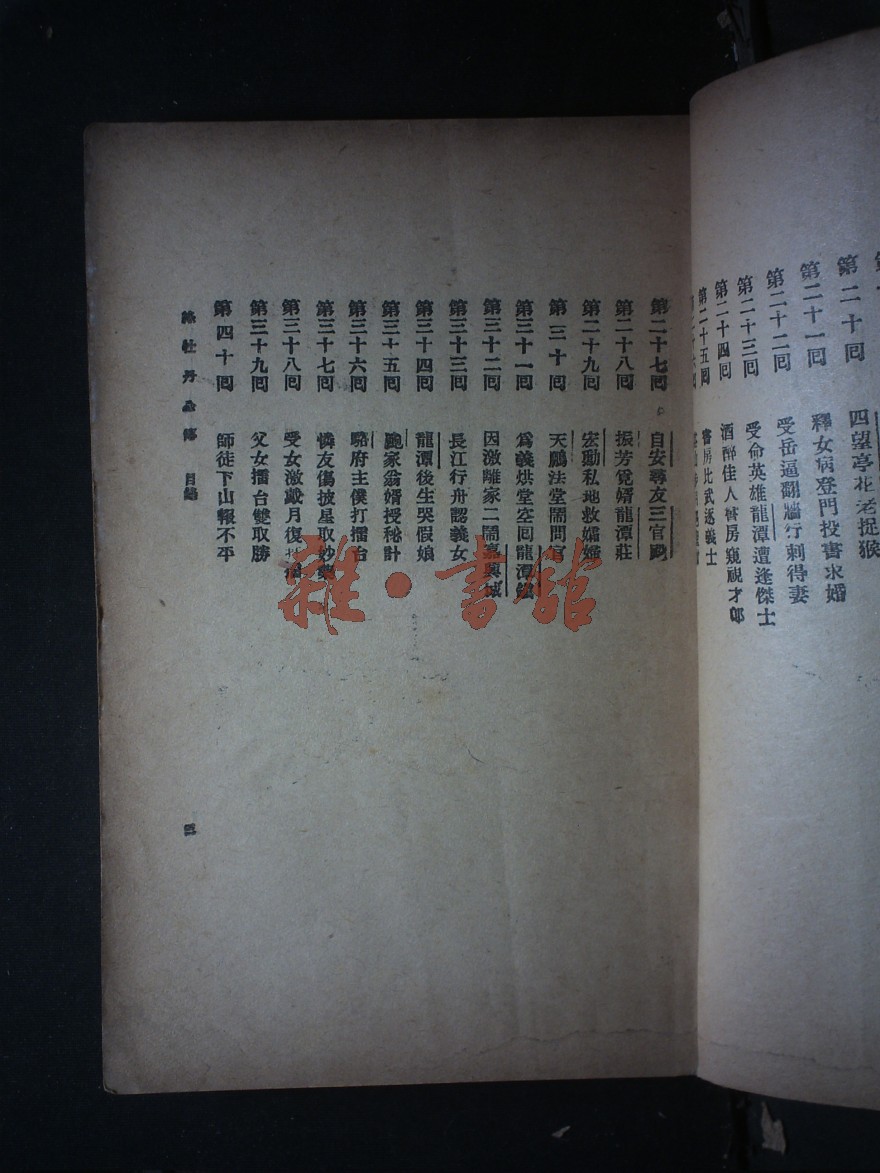 第二十回　四望亭花老捉猴
第二十一回　釋女病登門投書求婚
第二十二回　受岳逼翻牆行刺得妻
第二十三回　受命英雄龍潭遭逢傑士
第二十四回　酒醉佳人書房窺視才郎
第二十五回　書房比武逐義士
第二十七回　自安尋友三官殿
第二十八回　振芳覓婿龍潭莊
第二十九回　宏勳私地救孀婦
第三十回　天鵬法堂鬧問官
第三十一回　爲義烘堂空回龍潭鎮
第三十二回　因激離家二鬧嘉興城
第三十三回　長江行舟認義女
第三十四回　龍潭後生哭假娘
第三十五回　鮑家翁婿授秘計
第三十六回　駱府主僕打擂台
第三十七回　憐友傷披星取妙藥
第三十八回　受女激戴月復擂
第三十九回　父女擂台雙取勝
第四十回　師徒下山報不平
綠牡丹全傳　目錄
四
雜·書館